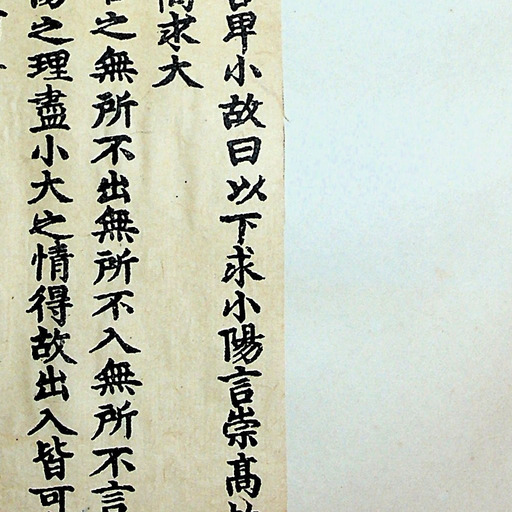 卑小故曰以下求小陽言崇高
求大
之無所不出無所不入無所不言
之理盡小大之情得故出入皆可